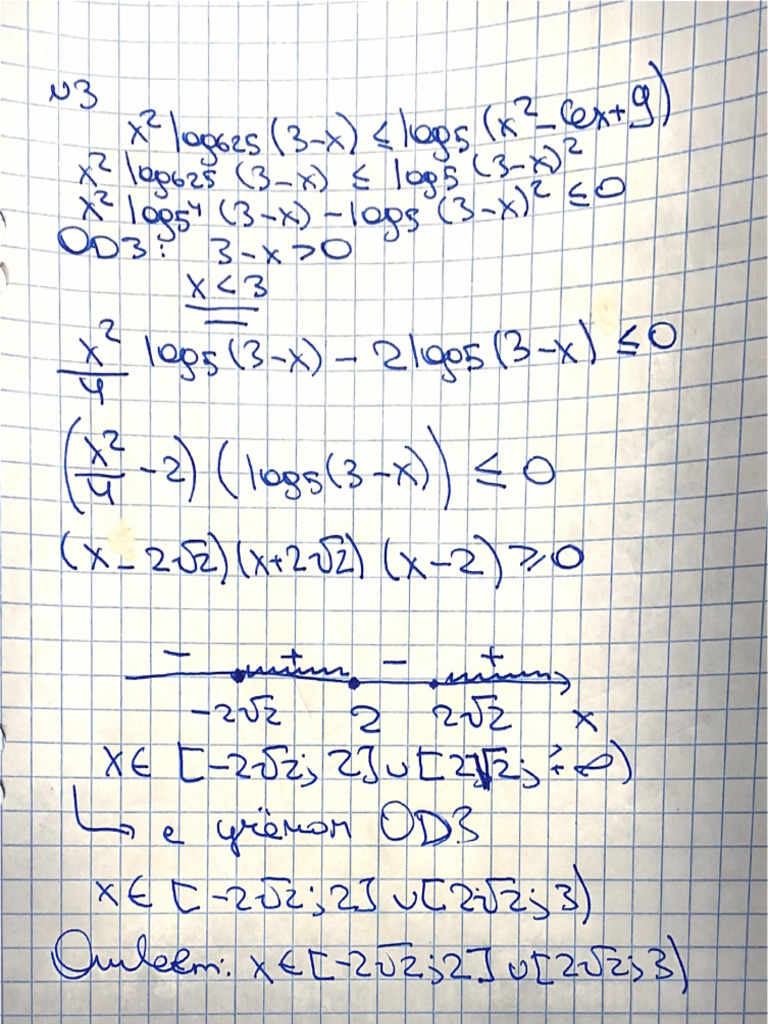 №3
x² log₆₂₅ (3-x) ≤ log₅ (x² - 6x + 9)
x² log₆₂₅ (3-x) ≤ log₅ (3-x)²
x² log₅⁴ (3-x) - log₅ (3-x)² ≤ 0
ОДЗ: 3-x > 0
x < 3
x²/4 log₅ (3-x) - 2 log₅ (3-x) ≤ 0
(x²/4 - 2) (log₅ (3-x)) ≤ 0
(x - 2√2)(x + 2√2) (x-2) ≥ 0
- + - +
-2√2 2 2√2 x
x ∈ [-2√2; 2] ∪ [2√2; +∞)
с учётом ОДЗ
x ∈ [-2√2; 2] ∪ [2√2; 3)
Ответ: x ∈ [-2√2; 2] ∪ [2√2; 3)